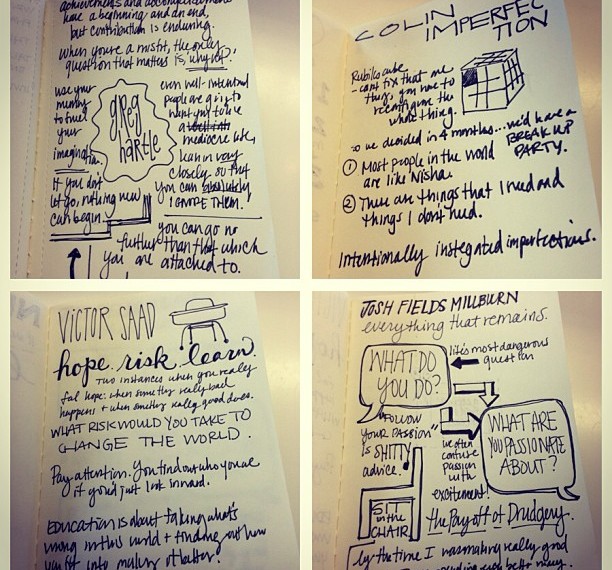 achievements and accomplishments
have a beginning and an end,
but contribution is enduring.
when you're a misfit, the only
question that matters is, why not?
use your
memory
to fuel
your
imagination
greg
hartle
even well-intentioned
people are going to
want you to live
a
mediocre life,
lean in very
closely so that
you can absolutely
IGNORE THEM.
If you don't
let go, nothing new
can begin.
you can go no
further than that which
you are attached to.
COLIN
IMPERFEC
TION
Rubiks cube
- cant fix that one
thing you have to
reconfigure the
whole thing.
so we decided in 4 months... we'd have a
BREAK UP
PARTY.
1 Most people in the world
are like Nisha.
2 There are things that I need and
things I don't need.
Intentionally instegated imperfections.
VICTOR SAAD
hope. risk. learn.
two instances when you really
feel hope: when somethg really bad
happens & when somethg really good does.
WHAT RISK WOULD YOU TAKE TO
CHANGE THE WORLD.
Pay attention. You find out who you are
if you'd just look inward.
Education is about taking what's
wrong in this world & finding out how
you fit into making it better.
JOSH FIELDS MILLBURN
everything that remains.
WHAT DO
YOU DO?
life's most dangerous
question
"FOLLOW
YOUR PASSION"
is SHITTY
advice.
we often
confuse
passion
with
excitement!
WHAT ARE
YOU PASSIONATE
ABOUT?
SIT
in the
CHAIR
the Payoff of Drudgery.
by the time I was making really good
spending even better money.